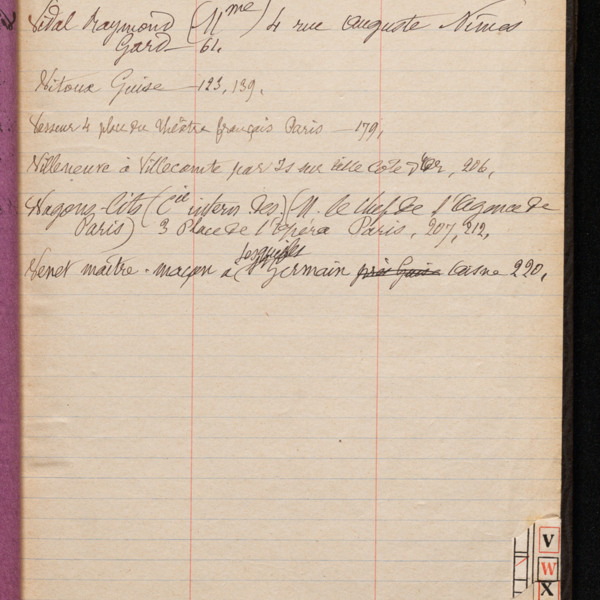 Vidal Raymond (Mme) 4 rue Auguste Nimes
Gard 61.
Vitoux Guise 123, 139.
Vasseur 4 place du Théâtre français Paris 179.
Villeneuve à Villecomte par Is sur tille Côte d'Or, 206.
Wagons-lits (Cie intern des) (M. le chef de l'agence de
Paris) 3 Place de l'Opéra Paris, 207, 212,
Lesquielles
Venet maître-maçon à St Germain près Guise Aisne 220.
V
W
X